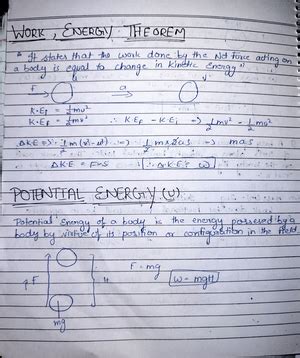 WORK, ENERGY THEOREM
" It states that the work done by the Net Force acting on
a body is equal to change in Kinetic Energy "
F a
K·Ei = ½mu²
K·Ef = ½mv² ∴ K·Ef - K·Ei => ½mv² - ½mu²
ΔK·E => ½m(v²-u²) => ½m×2as => mas
∴ ΔK·E = F×S ∴ ΔK·E = W
POTENTIAL ENERGY (U)
Potential Energy of a body is the energy possessed by a
body by virtue of its position or configuration in the field
↑F H F = mg W = mgH
mg